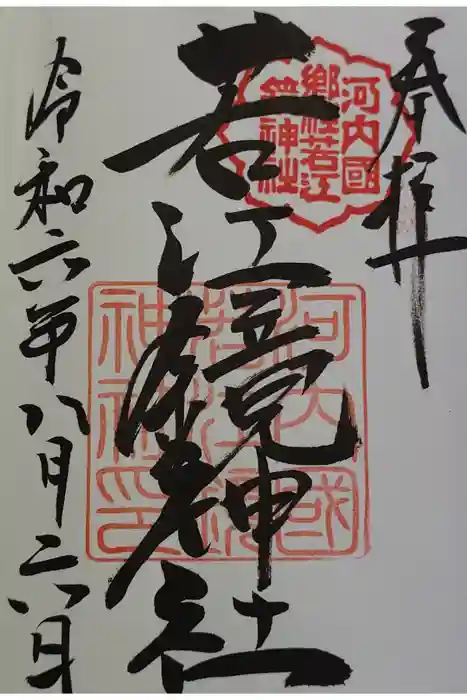 奉拝
河内國
郷社若江
鏡神社
若江鏡神社
河内國
若江鏡
神社印
令和六年八月二八日